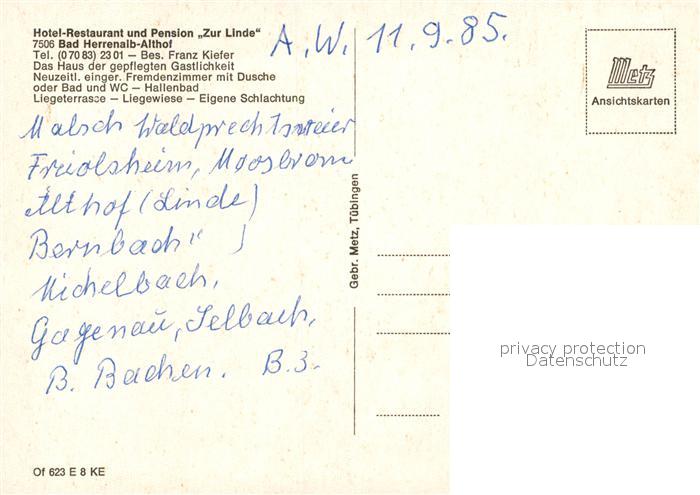 Hotel-Restaurant und Pension „Zur Linde“
7506 Bad Herrenalb-Althof
Tel. (0 70 83) 23 01 — Bes. Franz Kiefer
Das Haus der gepflegten Gastlichkeit
Neuzeitl. einger. Fremdenzimmer mit Dusche
oder Bad und WC — Hallenbad
Liegeterrasse — Liegewiese — Eigene Schlachtung
A.W. 11.9.85.
Metz
Ansichtskarten
Malsch Waldprechtsweier
Freiolsheim, Moosbronn
Althof (Linde)
Bernbach " )
Michelbach,
Gagenau, Selbach,
B. Baden. B.3.
Gebr. Metz, Tübingen
privacy protection
Datenschutz
Of 623 E 8 KE